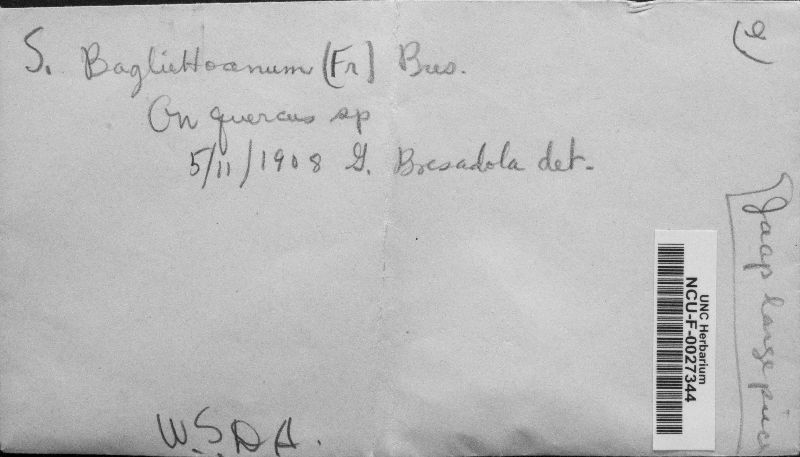 S. Bagliettoanum (Fr) Bres.
On quercus sp
5/11/1908 G. Bresadola det.
W.S.D.A.
UNC Herbarium
NCU-F-0027344
Jaap large